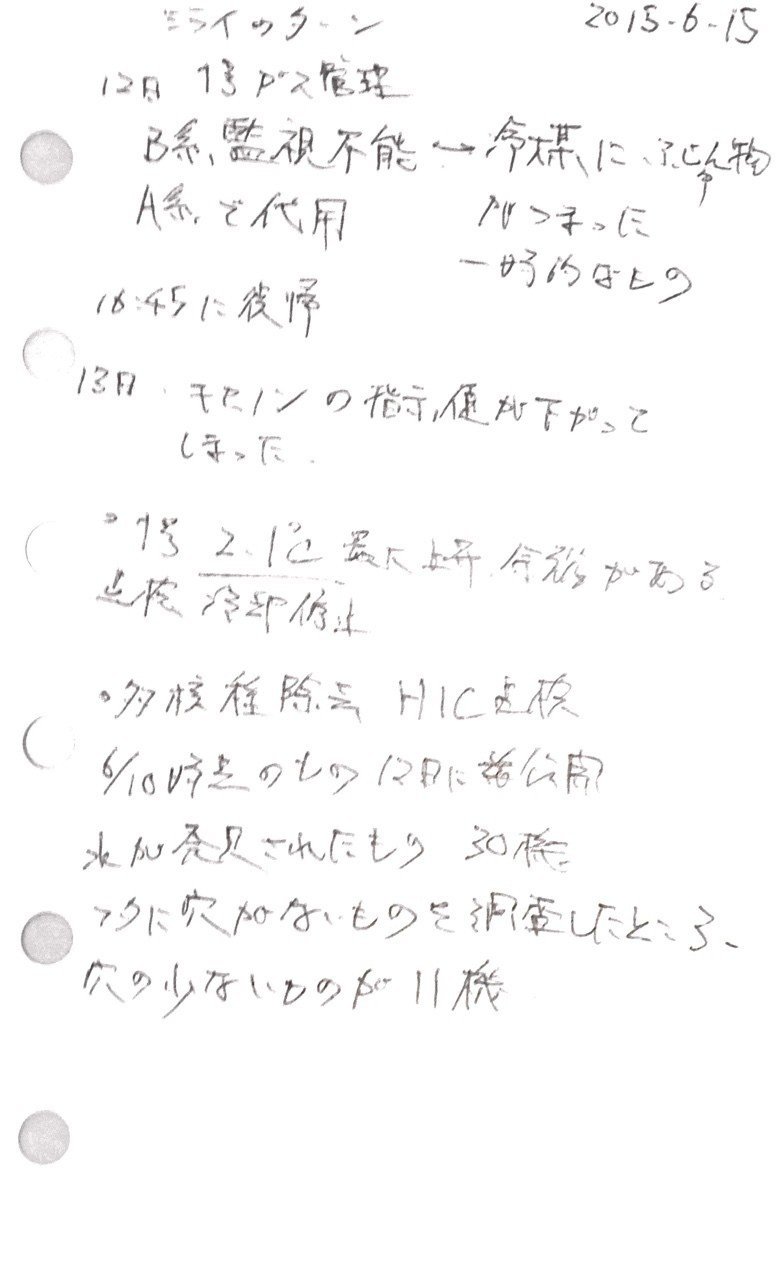 ミライのターン 2015-6-15
12日 1号ガス管理
B系、監視不能 → 冷媒にふじゅん物
A系で代用 がつまった
一時的なもの
16:45に復帰
13日 キセノンの指示値が下がって
しまった
・1号 2.1℃ 最大上昇 余裕がある
点検 冷却停止
・多核種除去 HIC点検
6/10時点のもの 12日に公開
水が発見されたもの 30機
フタに穴がないものを調査したところ、
穴の少ないものが 11機